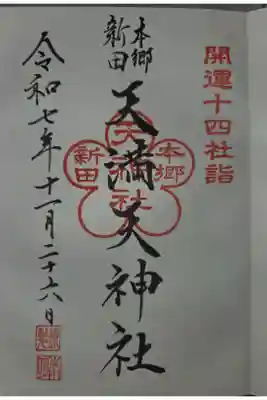 開運十四社詣
本郷
新田
天満天神社
本郷
新田
令和七年十一月二十六日